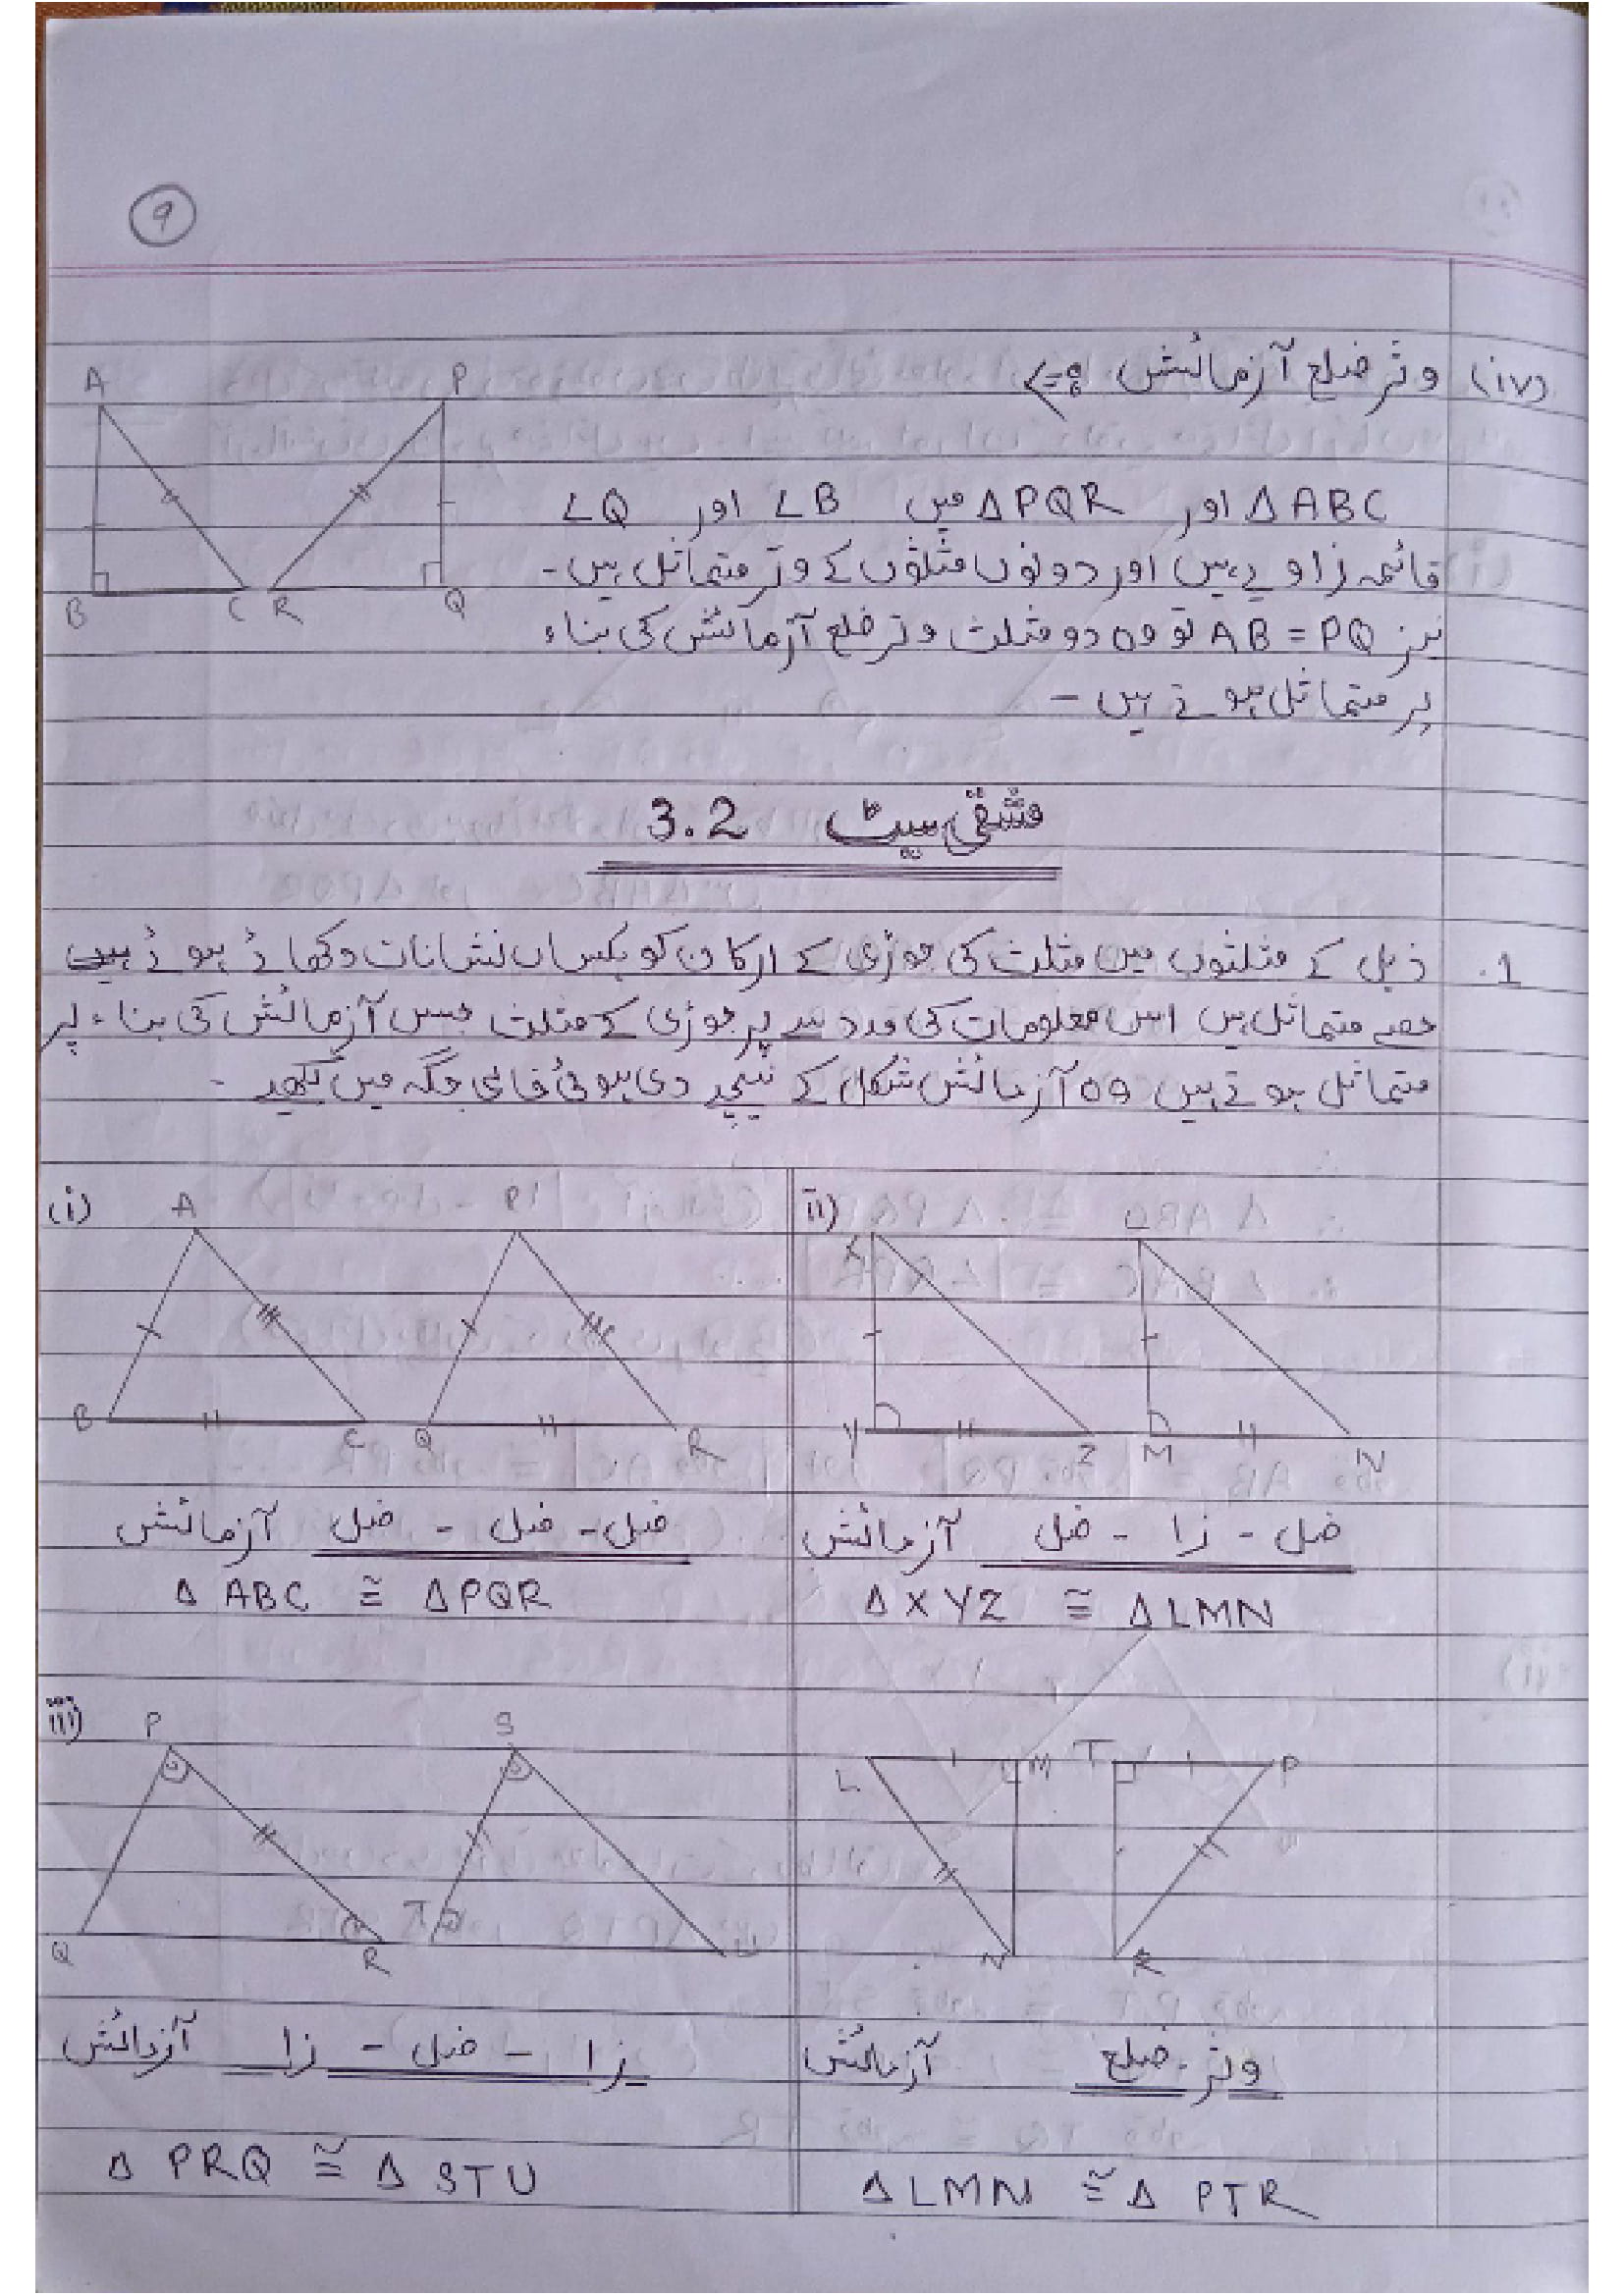 9
(iv) وتر ضلع آزمائش :->
A P
∆ABC اور ∆PQR میں ∠B اور ∠Q
قائمہ زاویے ہیں اور دونوں مثلثوں کے وتر متماثل ہیں۔
B C R Q
نیز AB = PQ تو وہ دو مثلث وتر ضلع آزمائش کی بناء
پر متماثل ہوتے ہیں ۔
مشقی سیٹ 3.2
1. ذیل کے مثلثوں میں مثلث کی جوڑی کے ارکان کو یکساں نشانات دکھائے ہوئے ہیں
حصے متماثل ہیں اس معلومات کی مدد سے ہر جوڑی کے مثلث جس آزمائش کی بناء پر
متماثل ہوتے ہیں وہ آزمائش شکل کے نیچے دی ہوئی خالی جگہ میں لکھیے ۔
(i) A P
B C Q R
ضل - ضل - ضل آزمائش
∆ ABC ≅ ∆PQR
ii) X L
Y Z M N
ضل - زا - ضل آزمائش
∆XYZ ≅ ∆LMN
iii) P S
Q R T U
زا - ضل - زا آزمائش
∆ PRQ ≅ ∆ STU
L M T P
N R
وتر - ضلع آزمائش
∆LMN ≅ ∆ PTR